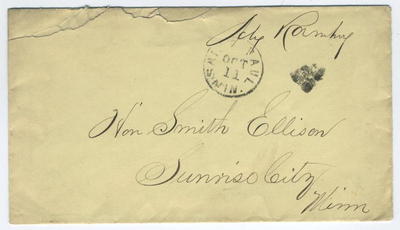 SAINT PAUL
OCT
11
MINN.
Hon Smith Ellison
Sunrise City
Minn